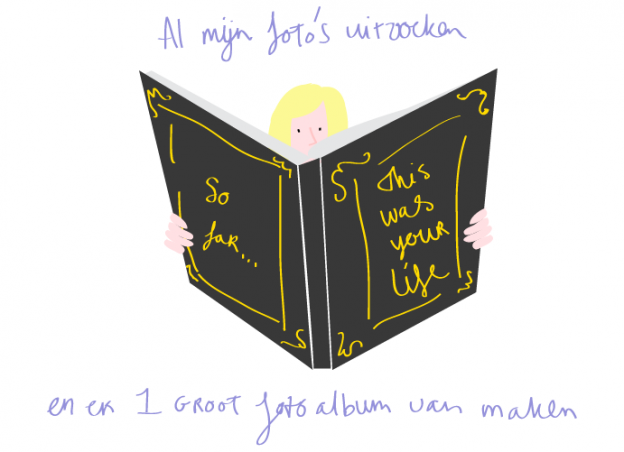 Al mijn foto's uitzoeken
So
far...
This
was
your
life
en er 1 GROOT fotoalbum van maken